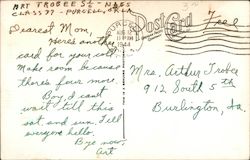 ART TROBEE S2/c - NAGS
CLASS 77 - PURCELL, OKLA
Post Card
Free
1944
Dearest Mom,
Here's another
card for your coll.
Make room because
there's four more.
Boy I can't
wait till this
sat. and sun. Tell
everyone hello.
Bye now.
Art
Mrs. Arthur Trobee
912 South 5th
Burlington, Ia.